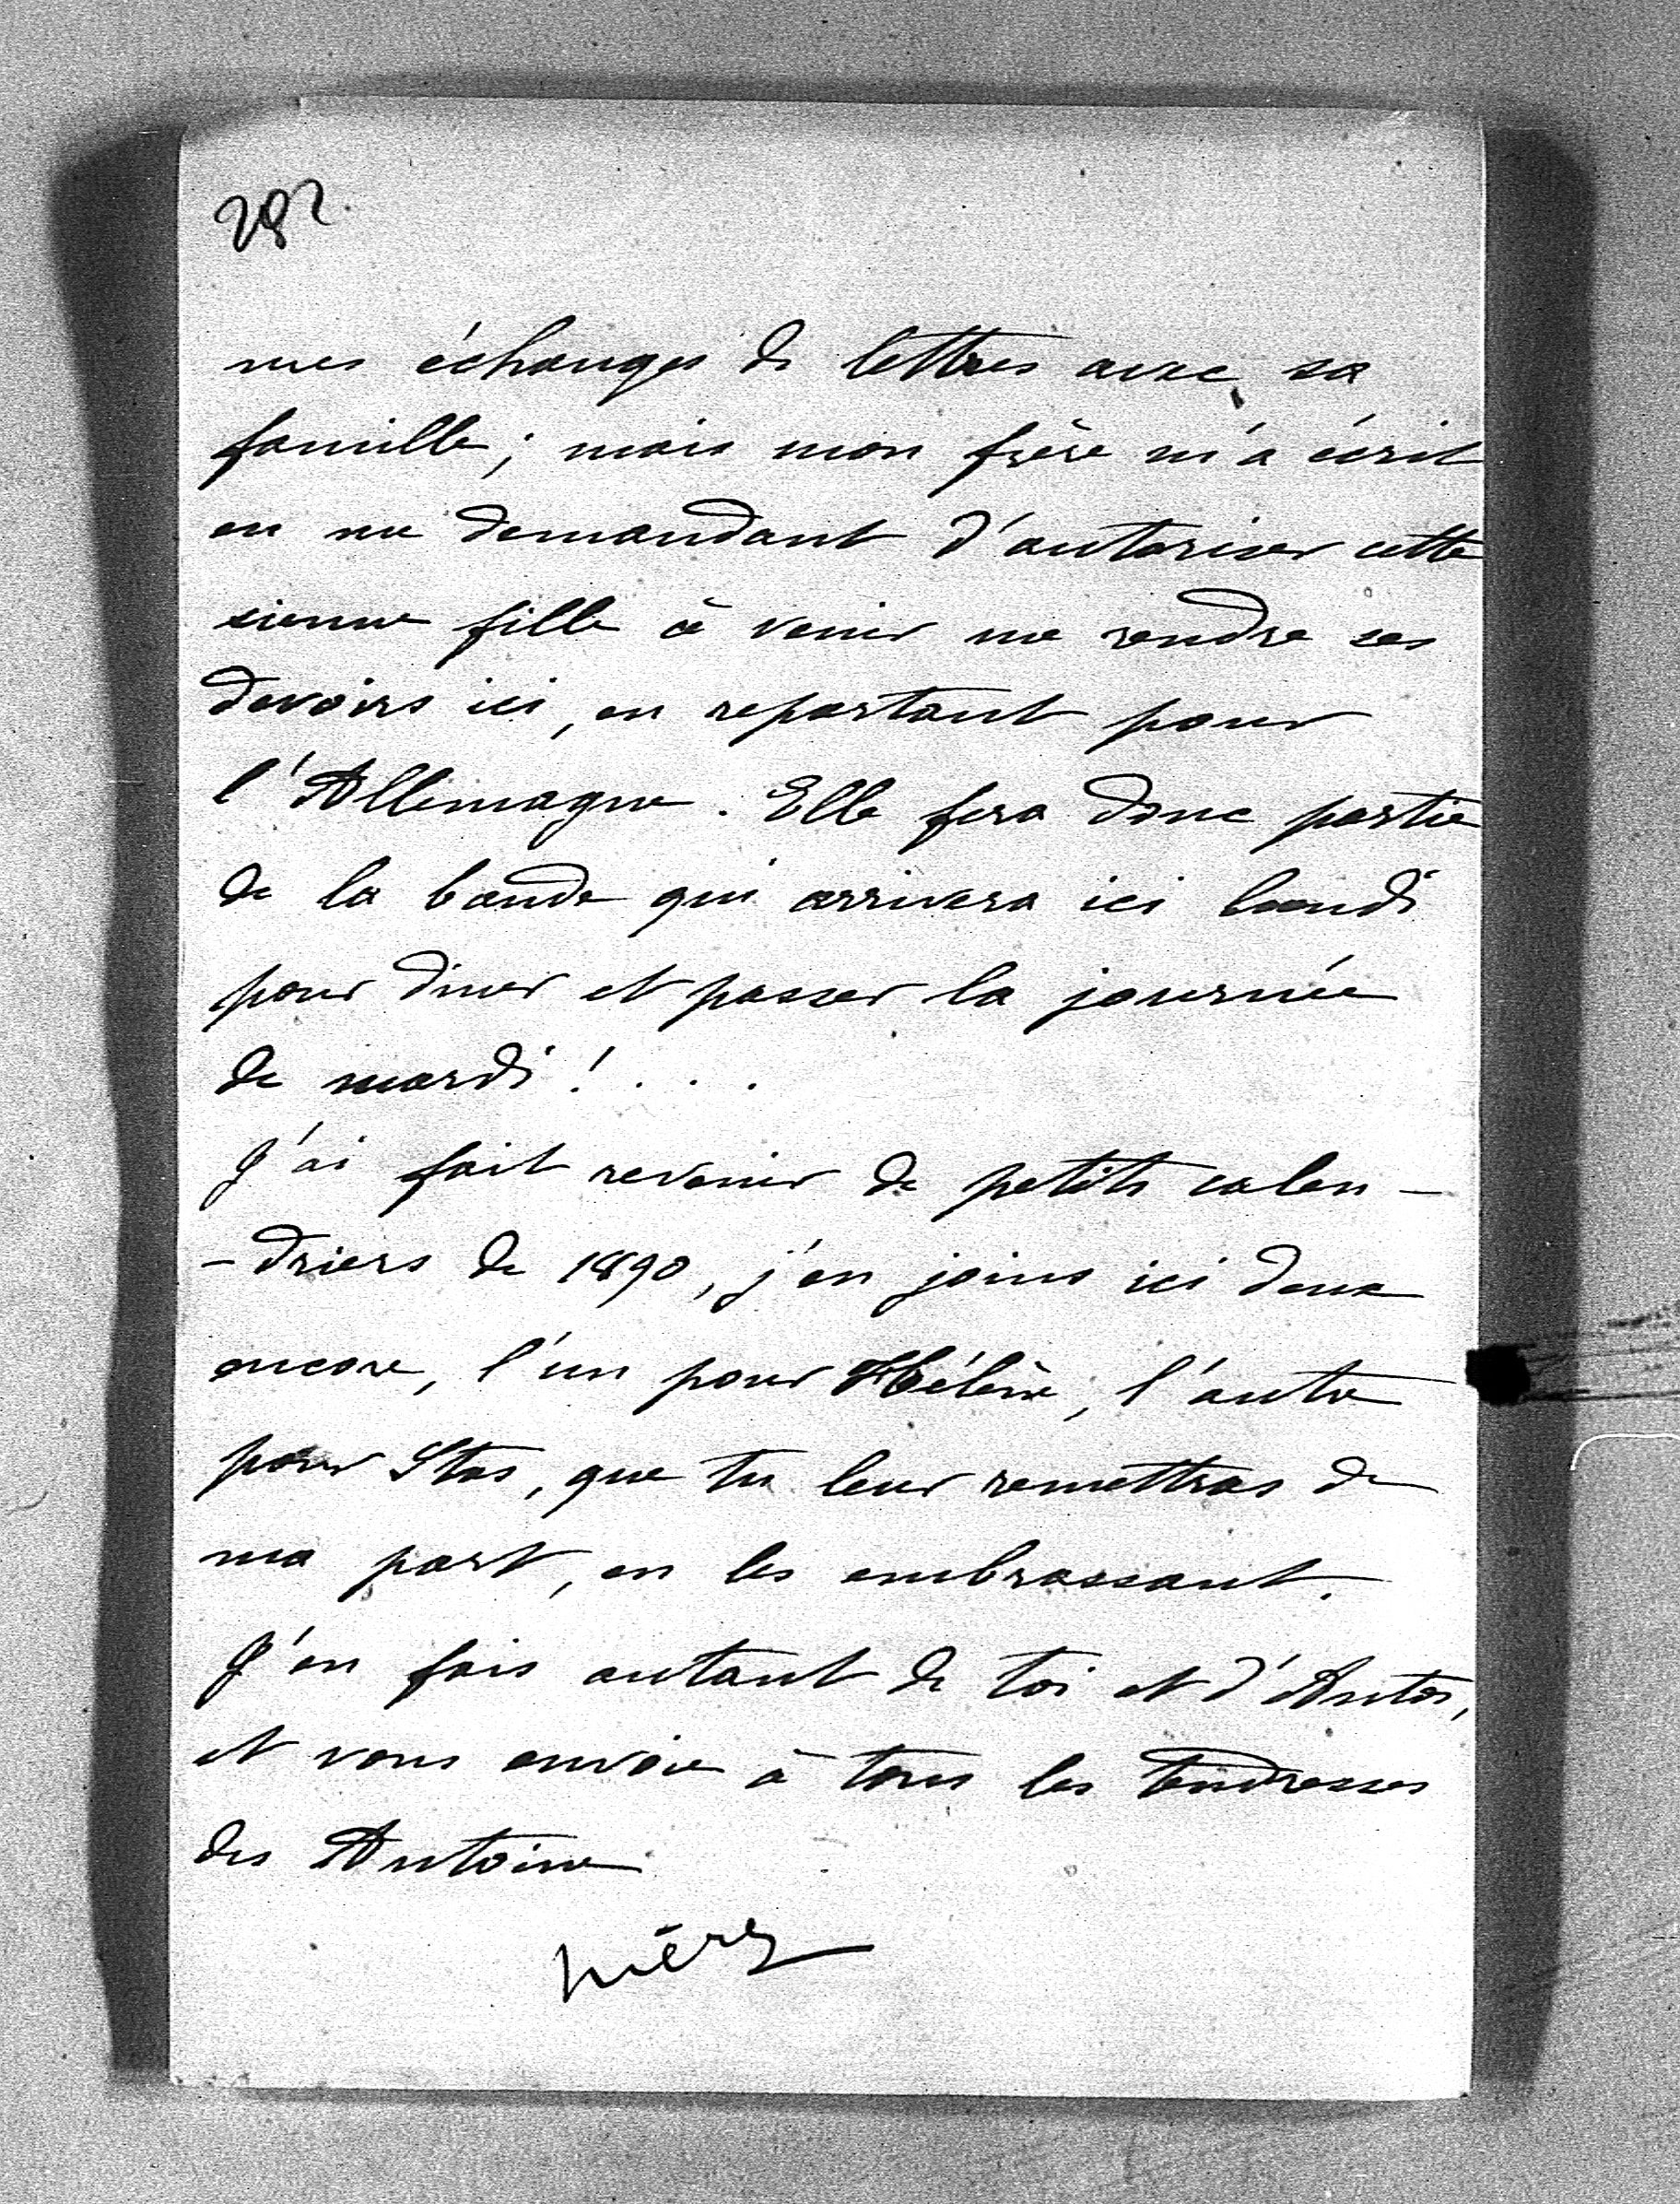 282
mes échanges de lettres avec sa
famille; mais mon frère m'a écrit
en me demandant d'autoriser cette
sienne fille à venir me rendre ses
devoirs ici, en repartant pour
l'Allemagne. Elle fera donc partie
de la bande qui arrivera ici lundi
pour diner et passer la journée
de mardi!...
J'ai fait revenir de petits calen-
-driers de 1890, j'en joins ici deux
encore, l'un pour Hélène, l'autre
pour Stas, que tu leur remettras de
ma part, en les embrassant.
J'en fais autant de toi et d'Antos,
et vous envoie à tous les tendresses
des Antoine